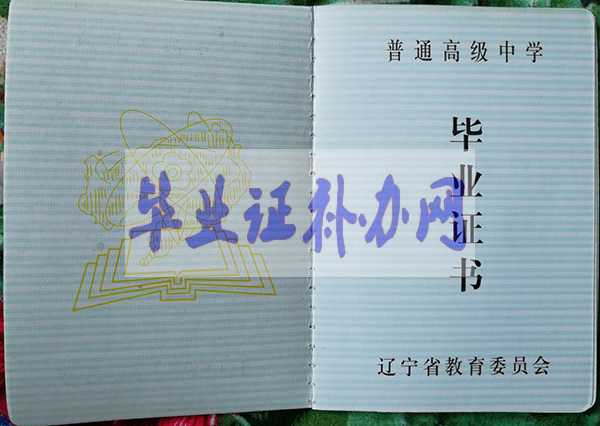 普通高级中学
毕业证书
辽宁省教育委员会
毕业证补办网